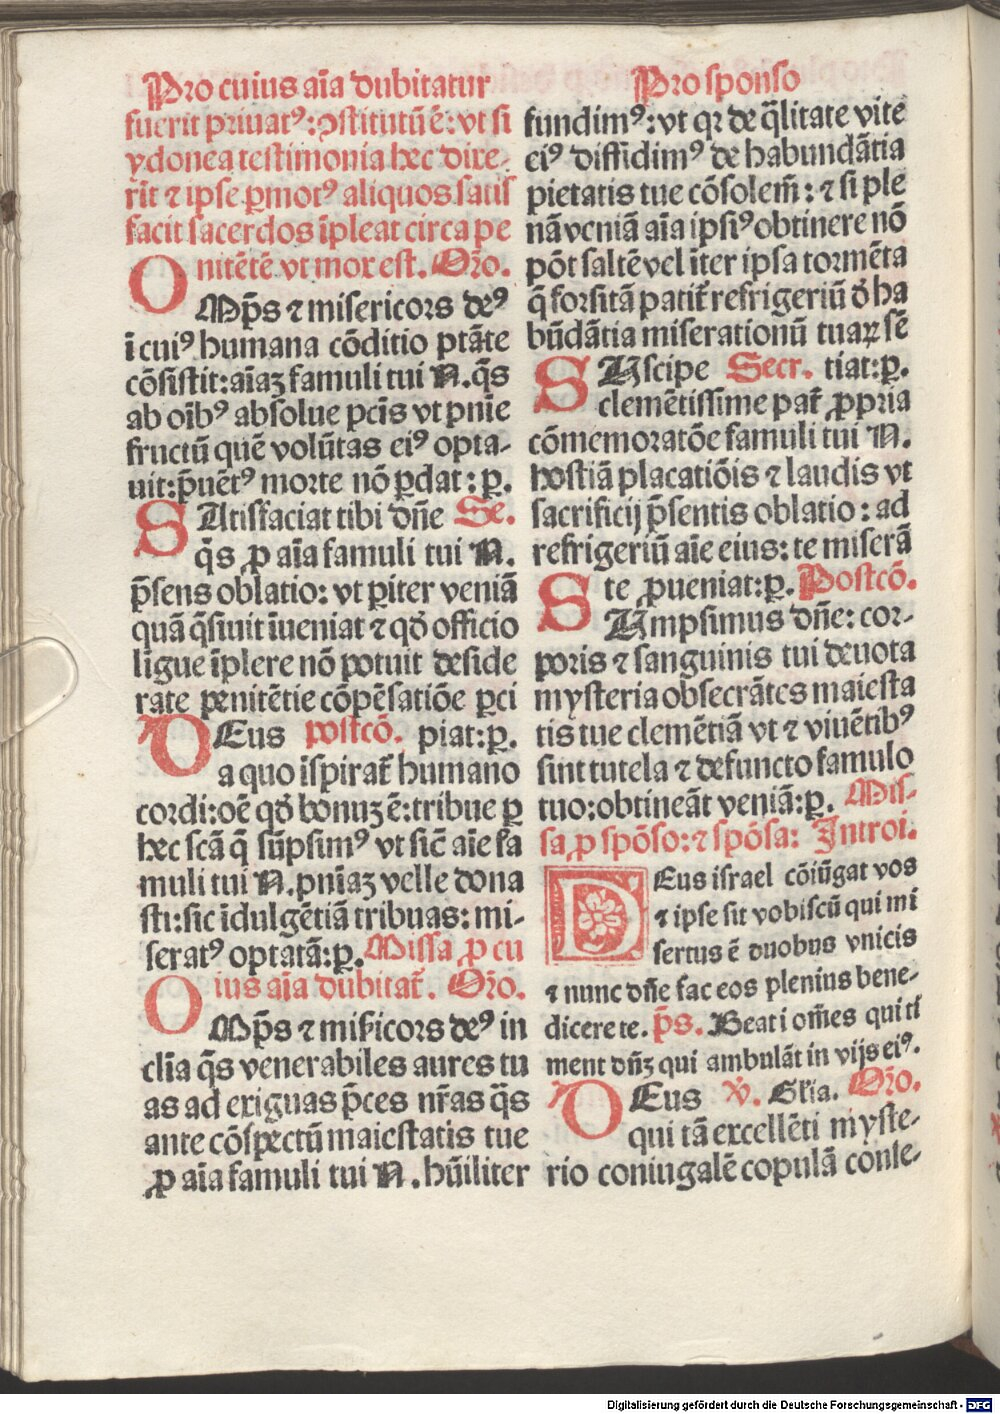 Pro cuius aīa dubitatur
fuerit priuatꝰ: ꝯstitutū ē: vt si
ydonea testimonia hec dixe-
rīt ⁊ ipse ꝑmotꝰ aliquos satis
facit sacerdos īpleat circa pe
nitētē vt mox est. Oro.
OMp̄s ⁊ misericors deꝰ
ī cuiꝰ humana cōditio ptāte
cōsistit: aīaꝫ famuli tui N. q̄s
ab oībꝰ absolue pctīs vt pnīe
fructū quē volūtas eiꝰ opta-
uit: p̄uētꝰ morte nō ꝑdat: ꝑ.
SAtisfaciat tibi dn̄e Se.
q̄s ꝓ aīa famuli tui N.
p̄sens oblatio: vt ꝑiter veniā
quā q̄siuit īueniat ⁊ qđ officio
ligue īplere nō potuit deside
rate penitētie cōpēsatiōe ꝑci
DEus postcō. piat: ꝑ.
a quo īspirat̄ humano
cordi: oē qđ bonuꝫ ē: tribue ꝑ
hec scā q̄ sūpsimꝰ vt sic̄ aīe fa
muli tui N. pnīaꝫ velle dona
sti: sic īdulgētiā tribuas: mi-
seratꝰ optatā: ꝑ. Missa ꝓ cu
ius aīa dubitat̄. Oro.
OMp̄s ⁊ mīsicors deꝰ in
clīa q̄s venerabiles aures tu
as ad exiguas p̄ces nr̄as q̄s
ante cōspectū maiestatis tue
ꝓ aīa famuli tui N. hūiliter
Pro sponso
fundimꝰ: vt qꝛ de q̄litate vite
eiꝰ diffidimꝰ de habundātia
pietatis tue cōsolem̄: ⁊ si ple
nā veniā aīa ipsiꝰ obtinere nō
pōt saltē vel īter ipsa tormēta
q̄ forsitā patit̄ refrigeriū ð ha
būdātia miserationū tuaꝝ sē
SUscipe Secr. tiat: ꝑ.
clemētissime pat̄ ꝓpria
cōmemoratōe famuli tui N.
hostiā placatiōis ⁊ laudis vt
sacrificij p̄sentis oblatio: ad
refrigeriū aīe eius: te miserā
te ꝓueniat: ꝑ. Postcō.
SUmpsimus dn̄e: cor-
poris ⁊ sanguinis tui deuota
mysteria obsecrātes maiesta
tis tue clemētiā vt ⁊ viuētibꝰ
sint tutela ⁊ defuncto famulo
tuo: obtineāt veniā: ꝑ. Mis-
sa ꝓ spōso: ⁊ spōsa: Introi.
DEus israel cōiūgat vos
⁊ ipse sit vobiscū qui mi
sertus ē duobus vnicis
⁊ nunc dn̄e fac eos plenius bene-
dicere te. p̄s. Beati om̄es qui ti
ment dn̄ꝫ qui ambulāt in vijs eiꝰ.
DEus ꝟ. Gl̄ia. Oro.
qui tā excellēti myste-
rio coniugalē copulā conse-
Digitalisierung gefördert durch die Deutsche Forschungsgemeinschaft - DFG